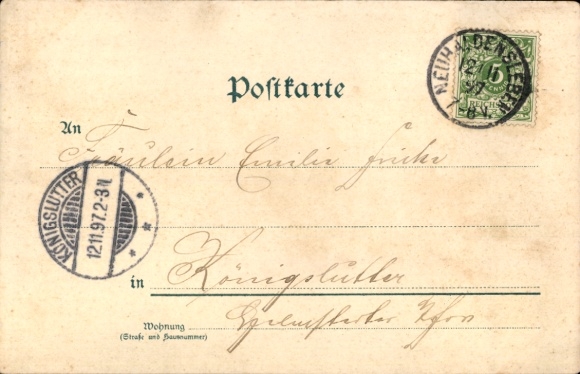 NEUHALDENSLEBEN
12 11
97
7-8V.
5
PFENNIG
REICHSPOST
Postkarte
An
Fräulein Emilie Fricke
KÖNIGSLUTTER
12.11.97.2-3N.
in Königslutter
Wohnung
(Straße und Hausnummer)